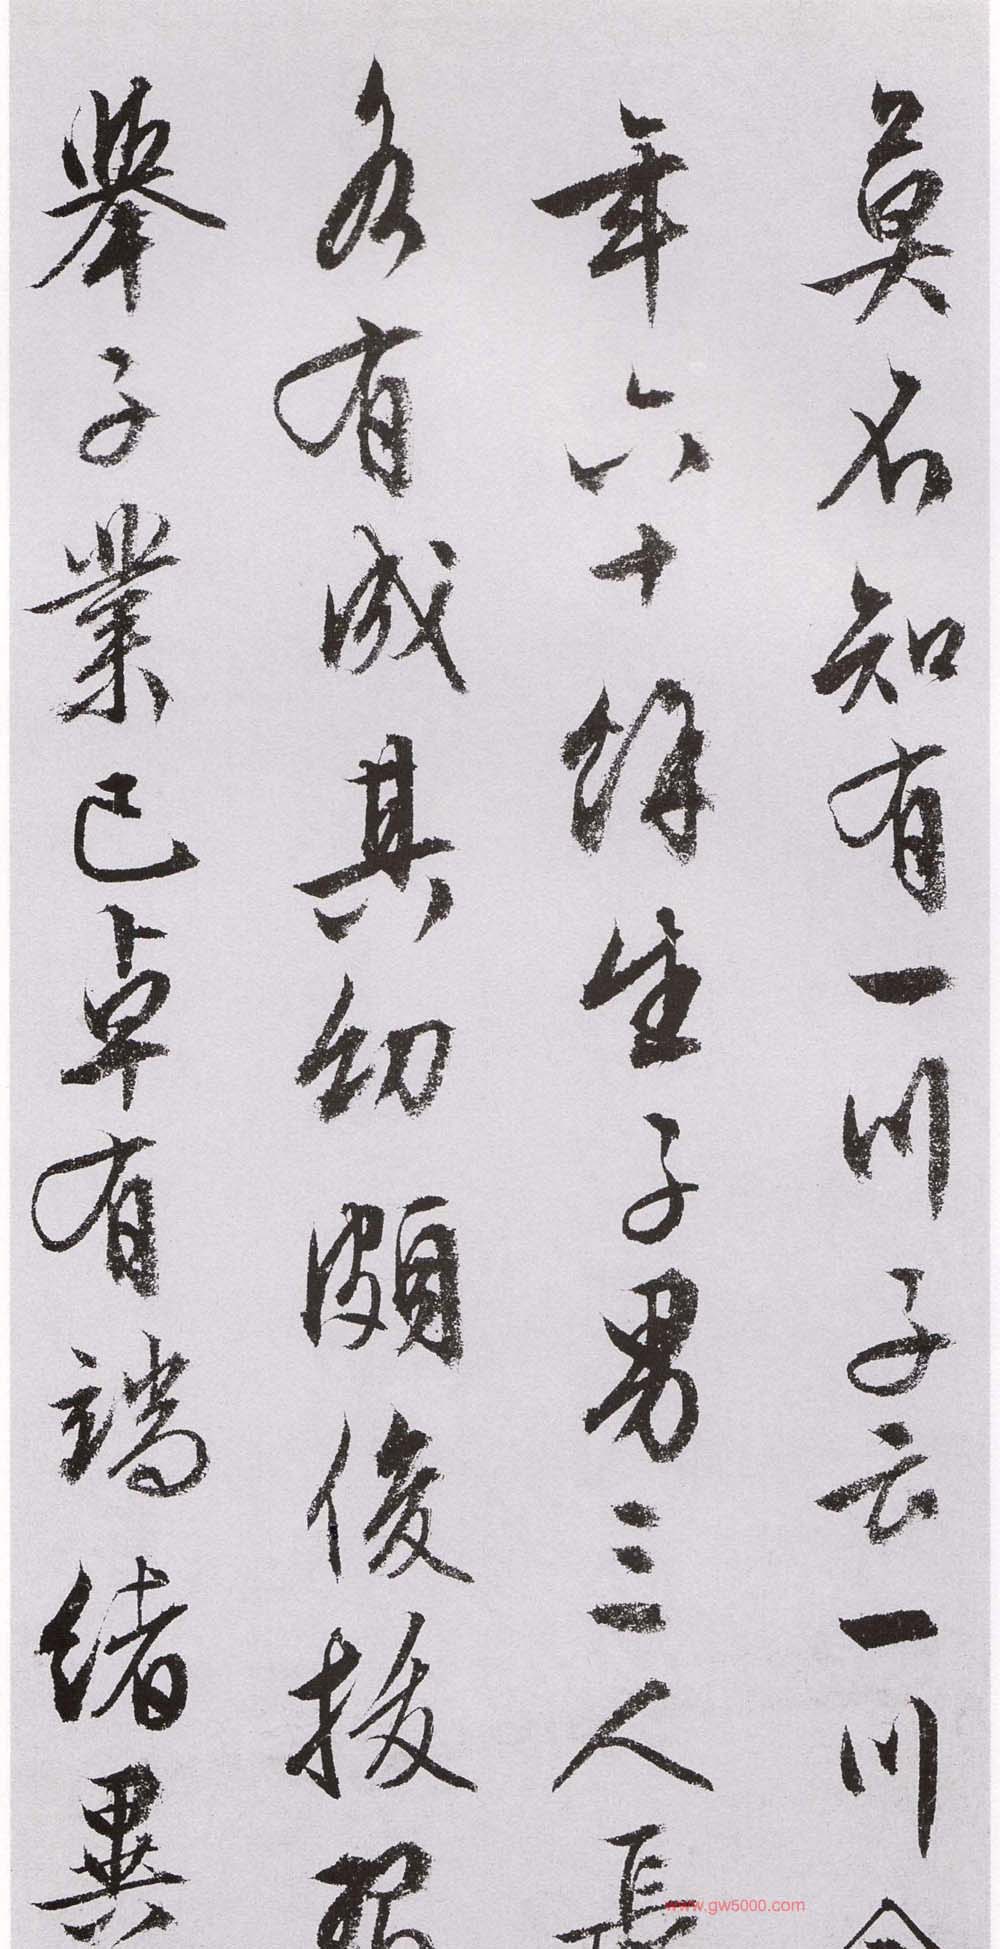 莫不知有一川子云一川今
年六十餘生子男三人長
者有成其幼頗俊拔習
舉子業已卓有端緒異
www.gw5000.com